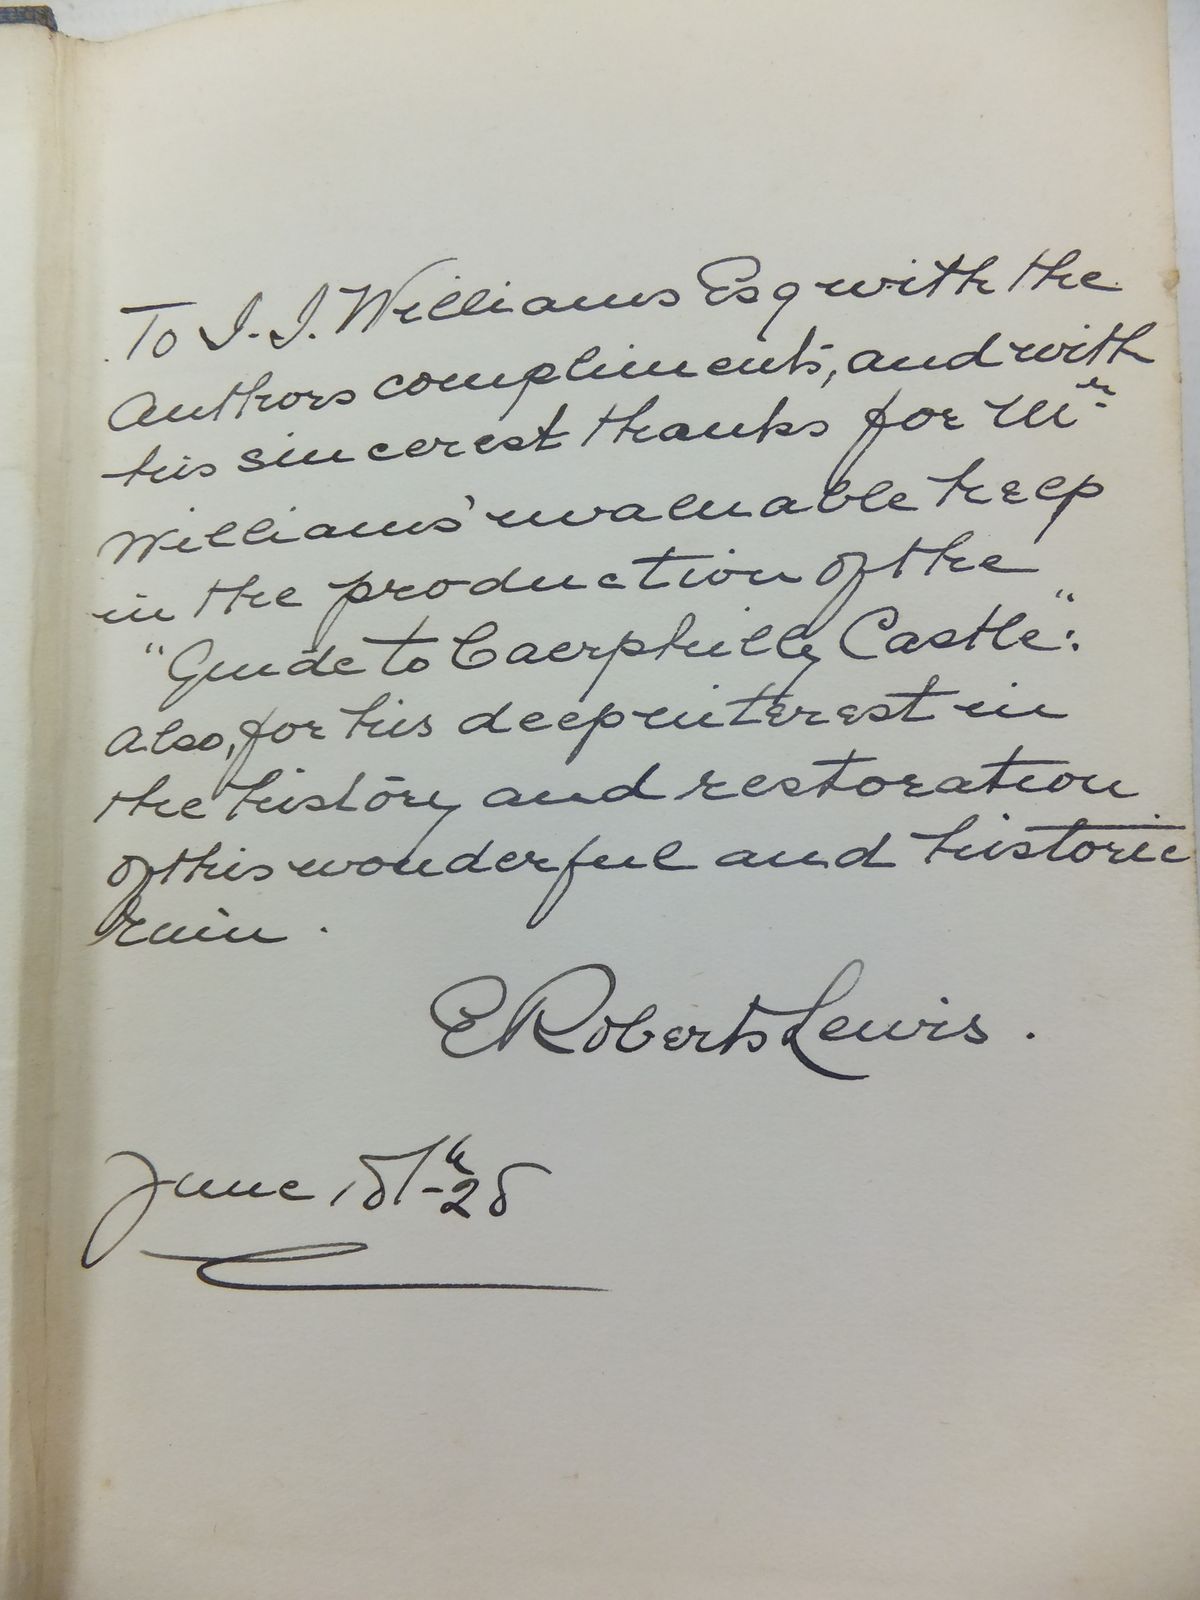 To I. I. Williams Esq with the
Authors compliments, and with
his sincerest thanks for Mr
Williams' invaluable help
in the production of the
"Guide to Caerphilly Castle":
also, for his deep interest in
the history and restoration
of this wonderful and historic
ruin.
E Roberts Lewis.
June